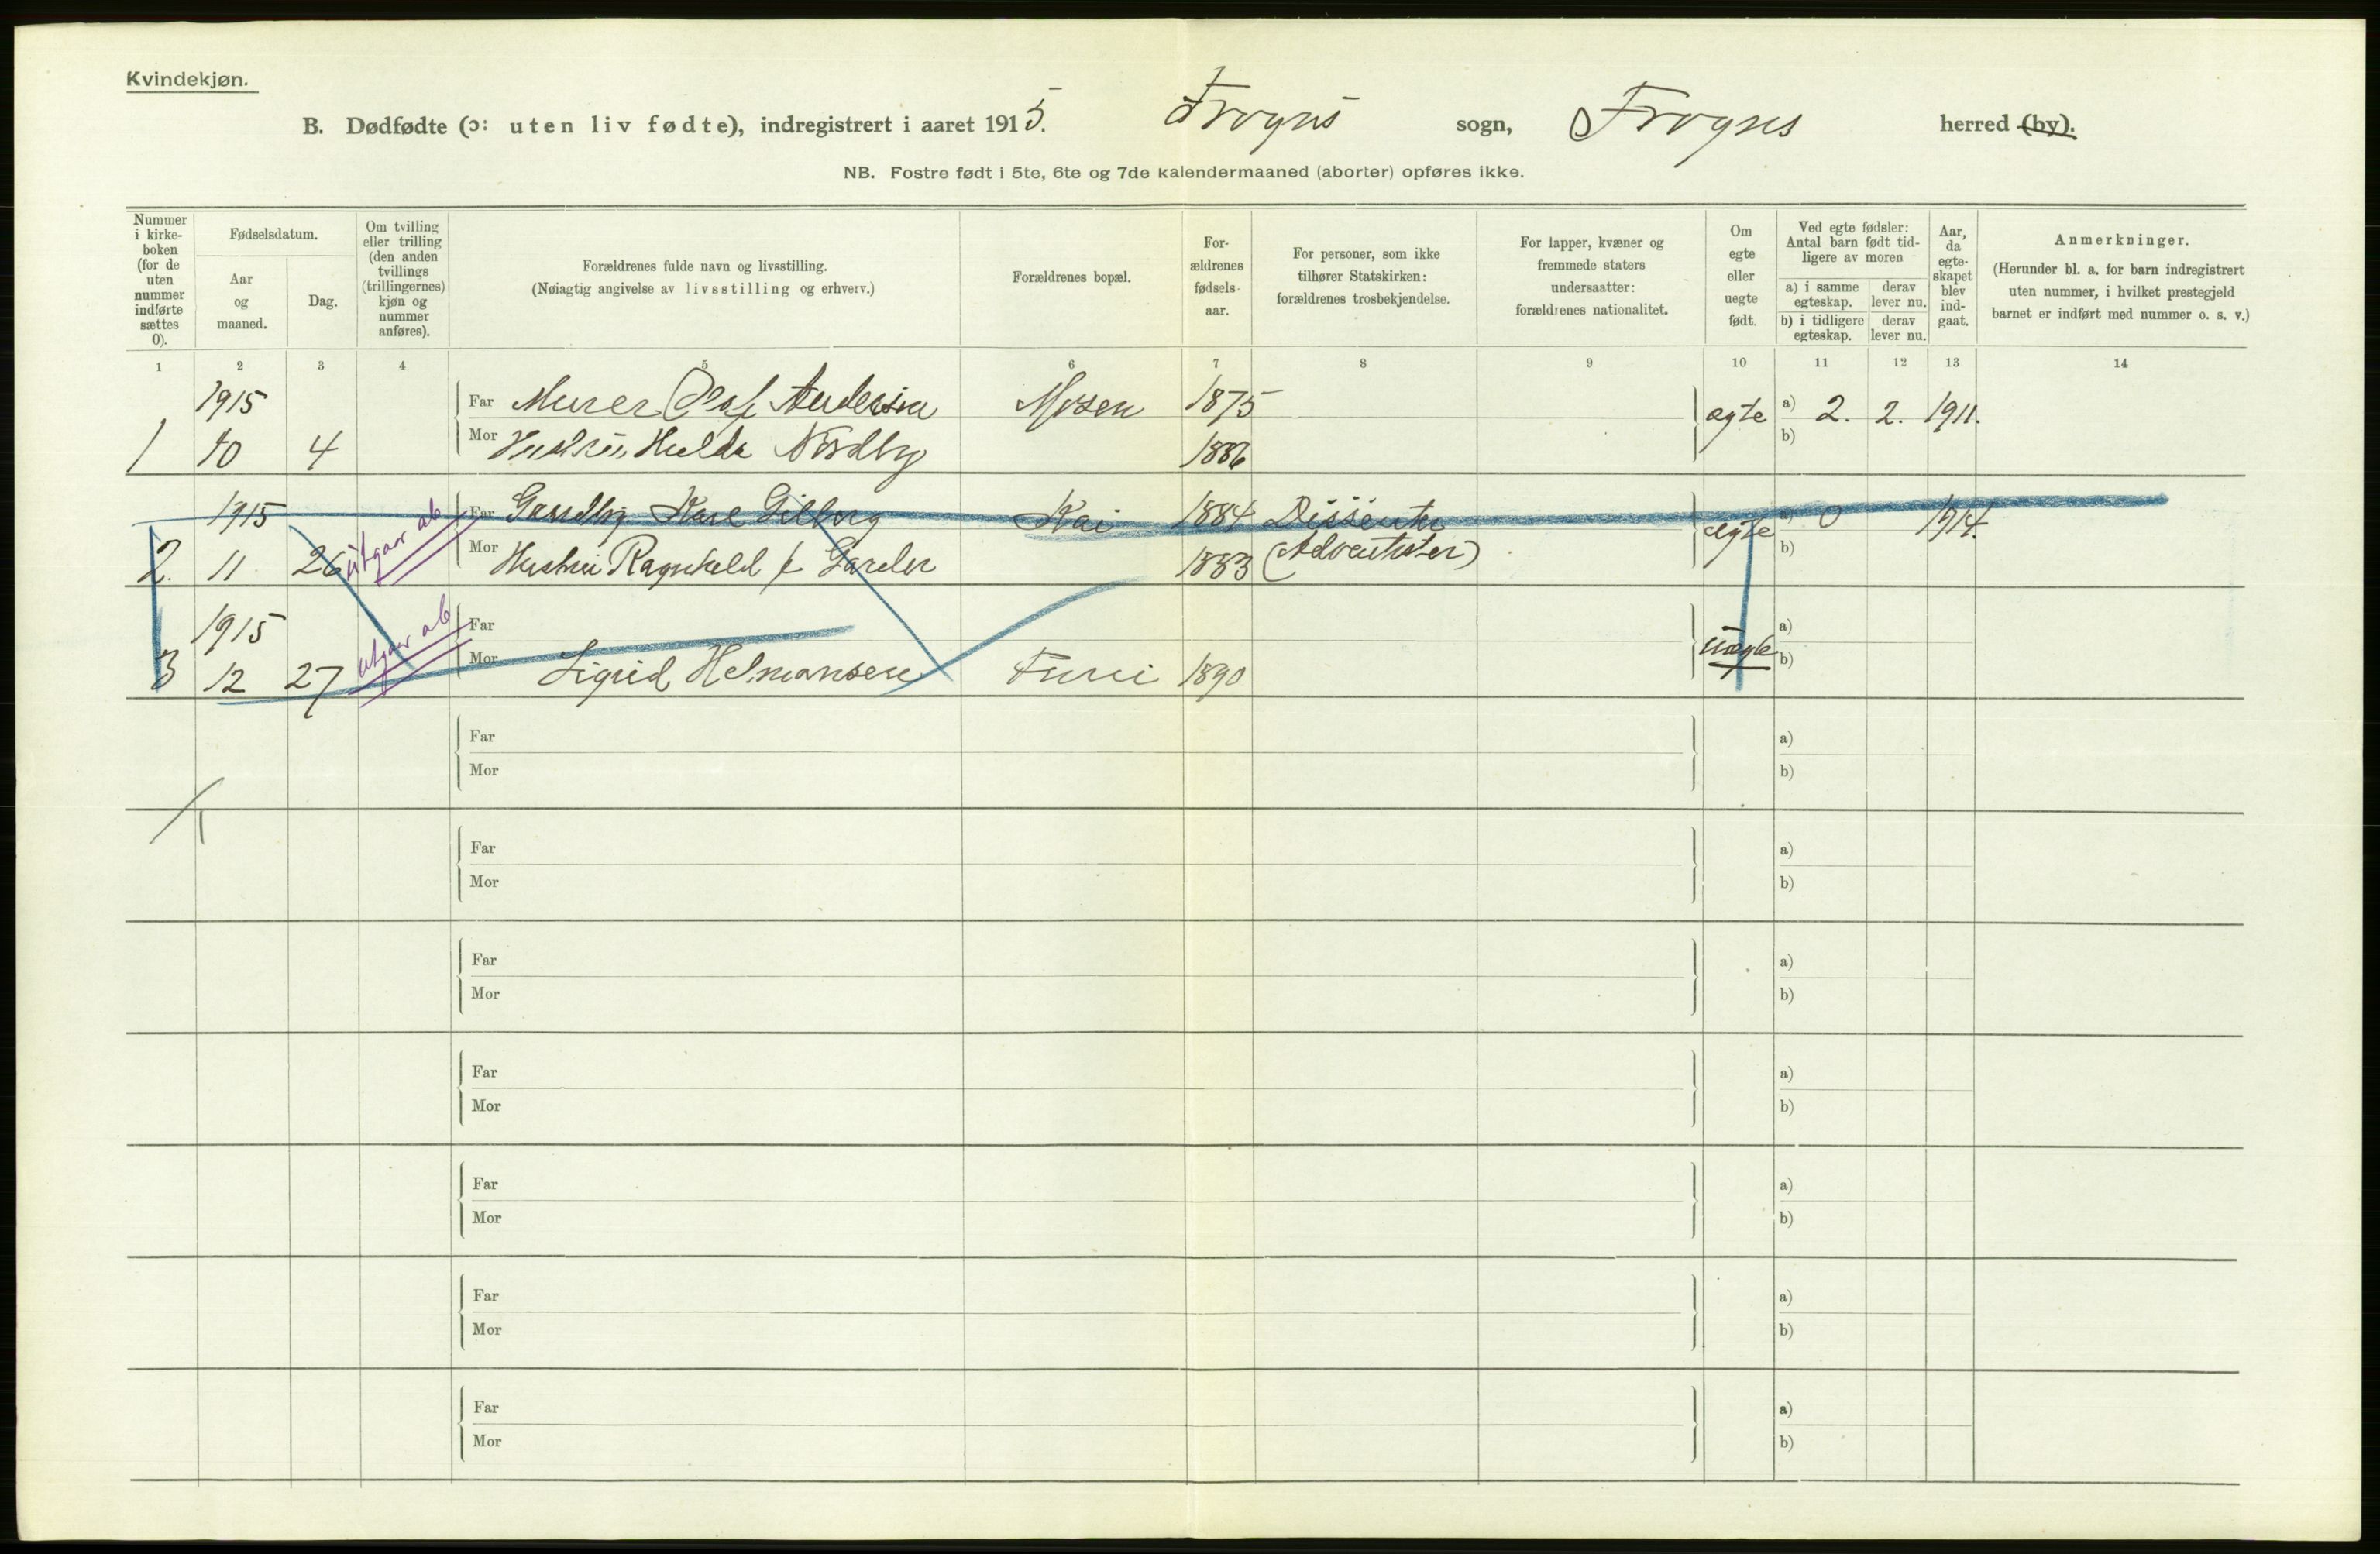 Kvindekjøn.
B. Dødfødte (ɔ: uten liv fødte), indregistrert i aaret 1915. Frogns sogn, Frogns herred (by).
NB. Fostre født i 5te, 6te og 7de kalendermaaned (aborter) opføres ikke.
Nummer i kirke-boken (for de uten nummer indførte sættes 0).
Fødselsdatum.
Aar og maaned.
Dag.
Om tvilling eller trilling (den anden tvillings (trillingernes) kjøn og nummer anføres).
Forældrenes fulde navn og livsstilling.
(Nøiagtig angivelse av livsstilling og erhverv.)
Forældrenes bopæl.
For-ældrenes fødsels-aar.
For personer, som ikke tilhører Statskirken: forældrenes trosbekjendelse.
For lapper, kvæner og fremmede staters undersaatter: forældrenes nationalitet.
Om egte eller uegte født.
Ved egte fødsler: Antal barn født tid-ligere av moren
a) i samme egteskap. derav lever nu.
b) i tidligere egteskap. derav lever nu.
Aar, da egte-skapet blev ind-gaat.
Anmerkninger.
(Herunder bl. a. for barn indregistrert uten nummer, i hvilket prestegjeld barnet er indført med nummer o. s. v.)
1 2 3 4 5 6 7 8 9 10 11 12 13 14
1915 Far Murer Olaf Anderson Mosen 1875 egte a) 2. 2. 1911.
1 10 4 Mor Hustru Hulda Nordby 1886 b)
1915 utgaar ab Far Karl Kai 1884 Dissenter egte a) 0 1914.
2. 11 26 Mor Hustru Ragnhild f. 1883 (Adventister) b)
1915 utgaar ab Far uegte a)
3 12 27 Mor Sigrid Helmansen 1890 b)
Far a)
Mor b)
Far a)
Mor b)
Far a)
Mor b)
Far a)
Mor b)
Far a)
Mor b)
Far a)
Mor b)
Far a)
Mor b)